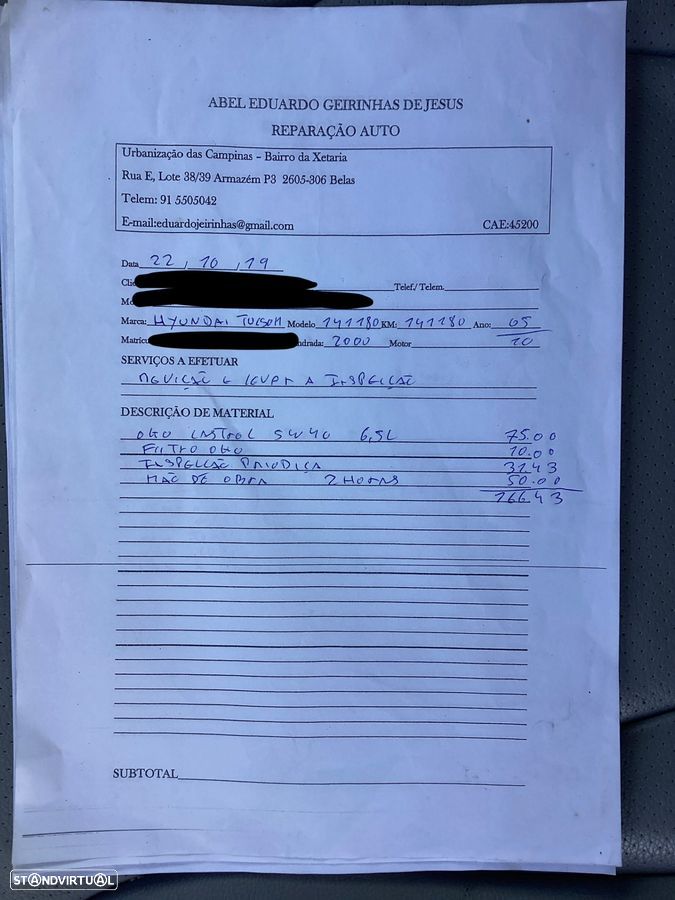 ABEL EDUARDO GEIRINHAS DE JESUS
REPARAÇÃO AUTO
Urbanização das Campinas – Bairro da Xetaria
Rua E, Lote 38/39 Armazém P3 2605-306 Belas
Telem: 91 5505042
E-mail:eduardojeirinhas@gmail.com CAE:45200
Data 22 / 10 / 19
Cli Telef./ Telem.
Mo
Marca: HYUNDAI TUCSON Modelo 141180 KM: 141180 Ano: 05
Matríc ndrada: 2000 Motor 10
SERVIÇOS A EFETUAR
E LEVAR A INSPEÇÃO
DESCRIÇÃO DE MATERIAL
OLEO CASTROL 5W40 6,5L 75.00
FILTRO OLEO 10.00
INSPEÇÃO 31.43
MÃO DE OBRA 2 HORAS 50.00
166.43
SUBTOTAL
STANDVIRTUAL